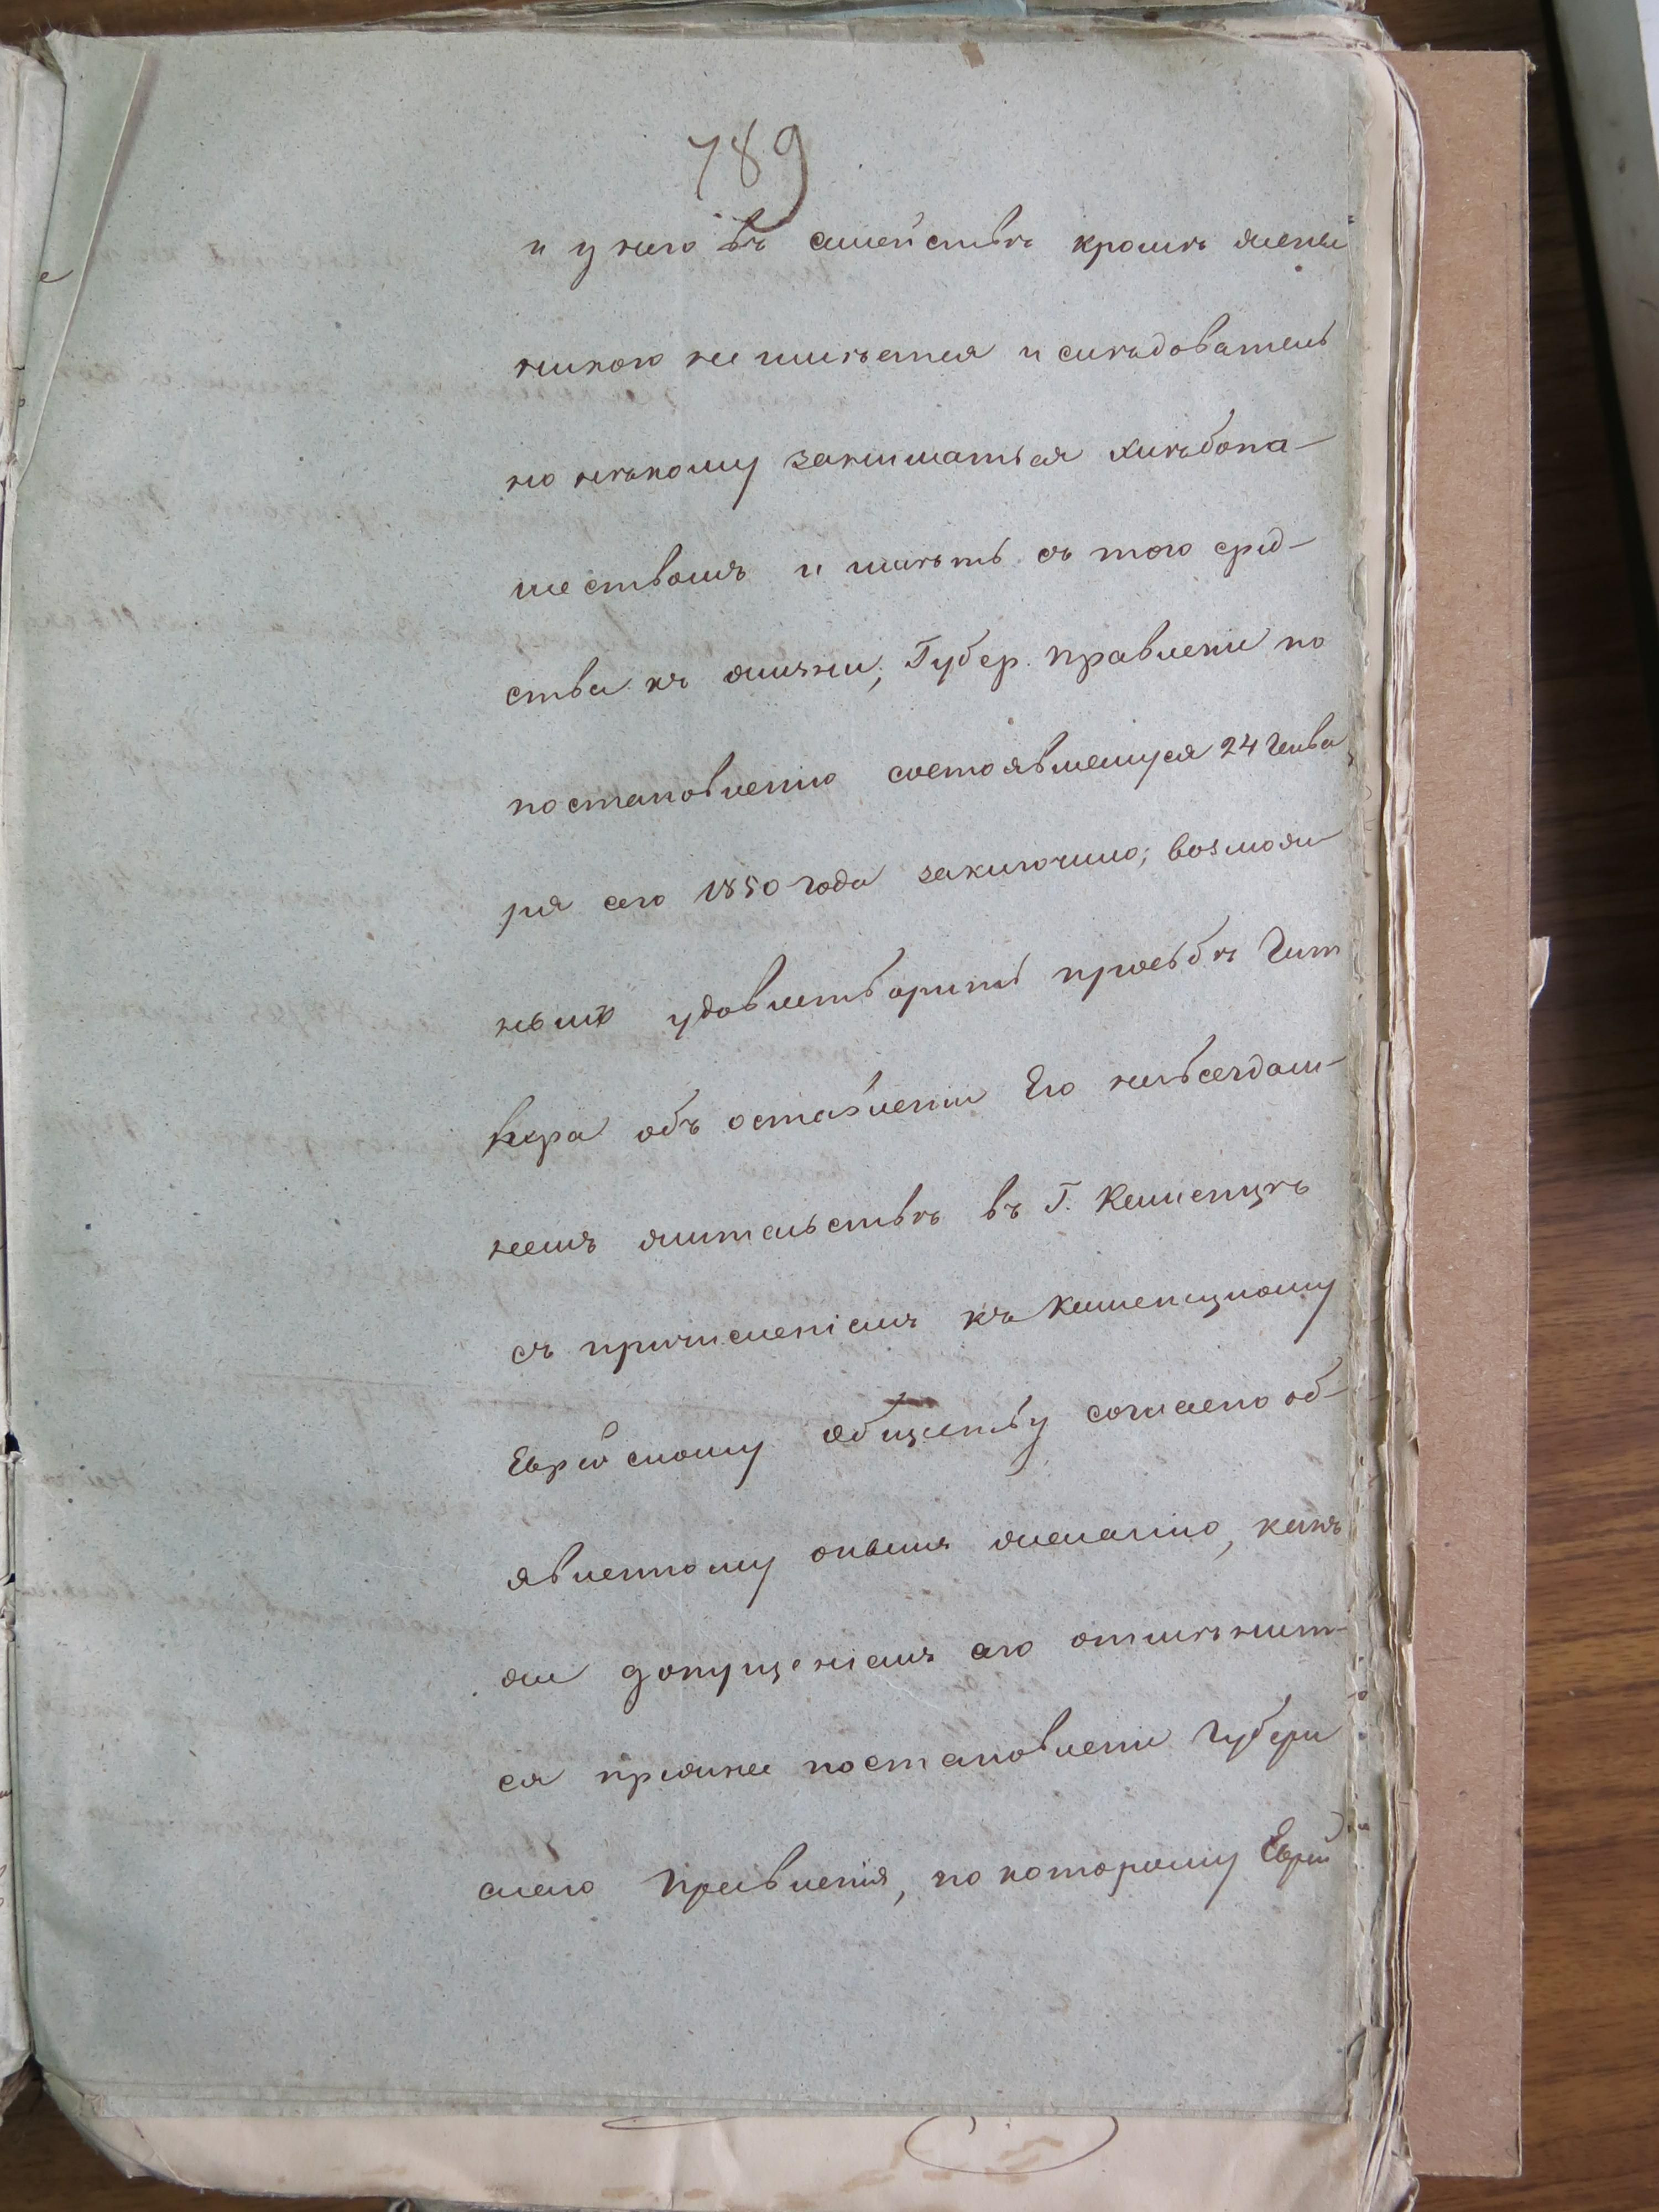 789
и у него въ семействѣ кромѣ жены
никого не имѣется и слѣдователь
но нѣкому заниматься хлѣбопа-
шествомъ и имѣть съ того сред-
ства къ жизни, Губер. правленіе по
постановленію состоявшемуся 24 Генва
ря сего 1850 года заключило; возмож
нымъ удовлетворить просьбѣ Гит
объ оставленіи Его навсегдаш-
немъ жительствѣ въ Г. Каменцѣ
съ причисленіемъ къ Каменецкому
Еврейскому обществу согласно об-
явленному онымъ желанію, какъ
же допущеніемъ его отмѣнит-
ся прежнее постановленіе Губерн
скаго Правленія, по которому Еврей